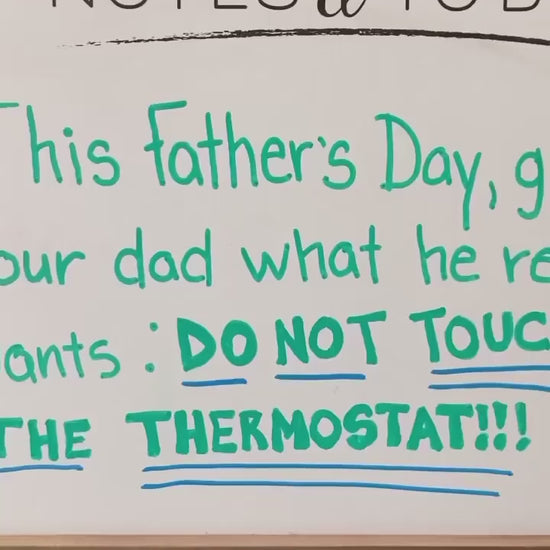 NOTES & TO D
This Father's Day, g
our dad what he re
ants : DO NOT TOUC
THE THERMOSTAT!!!